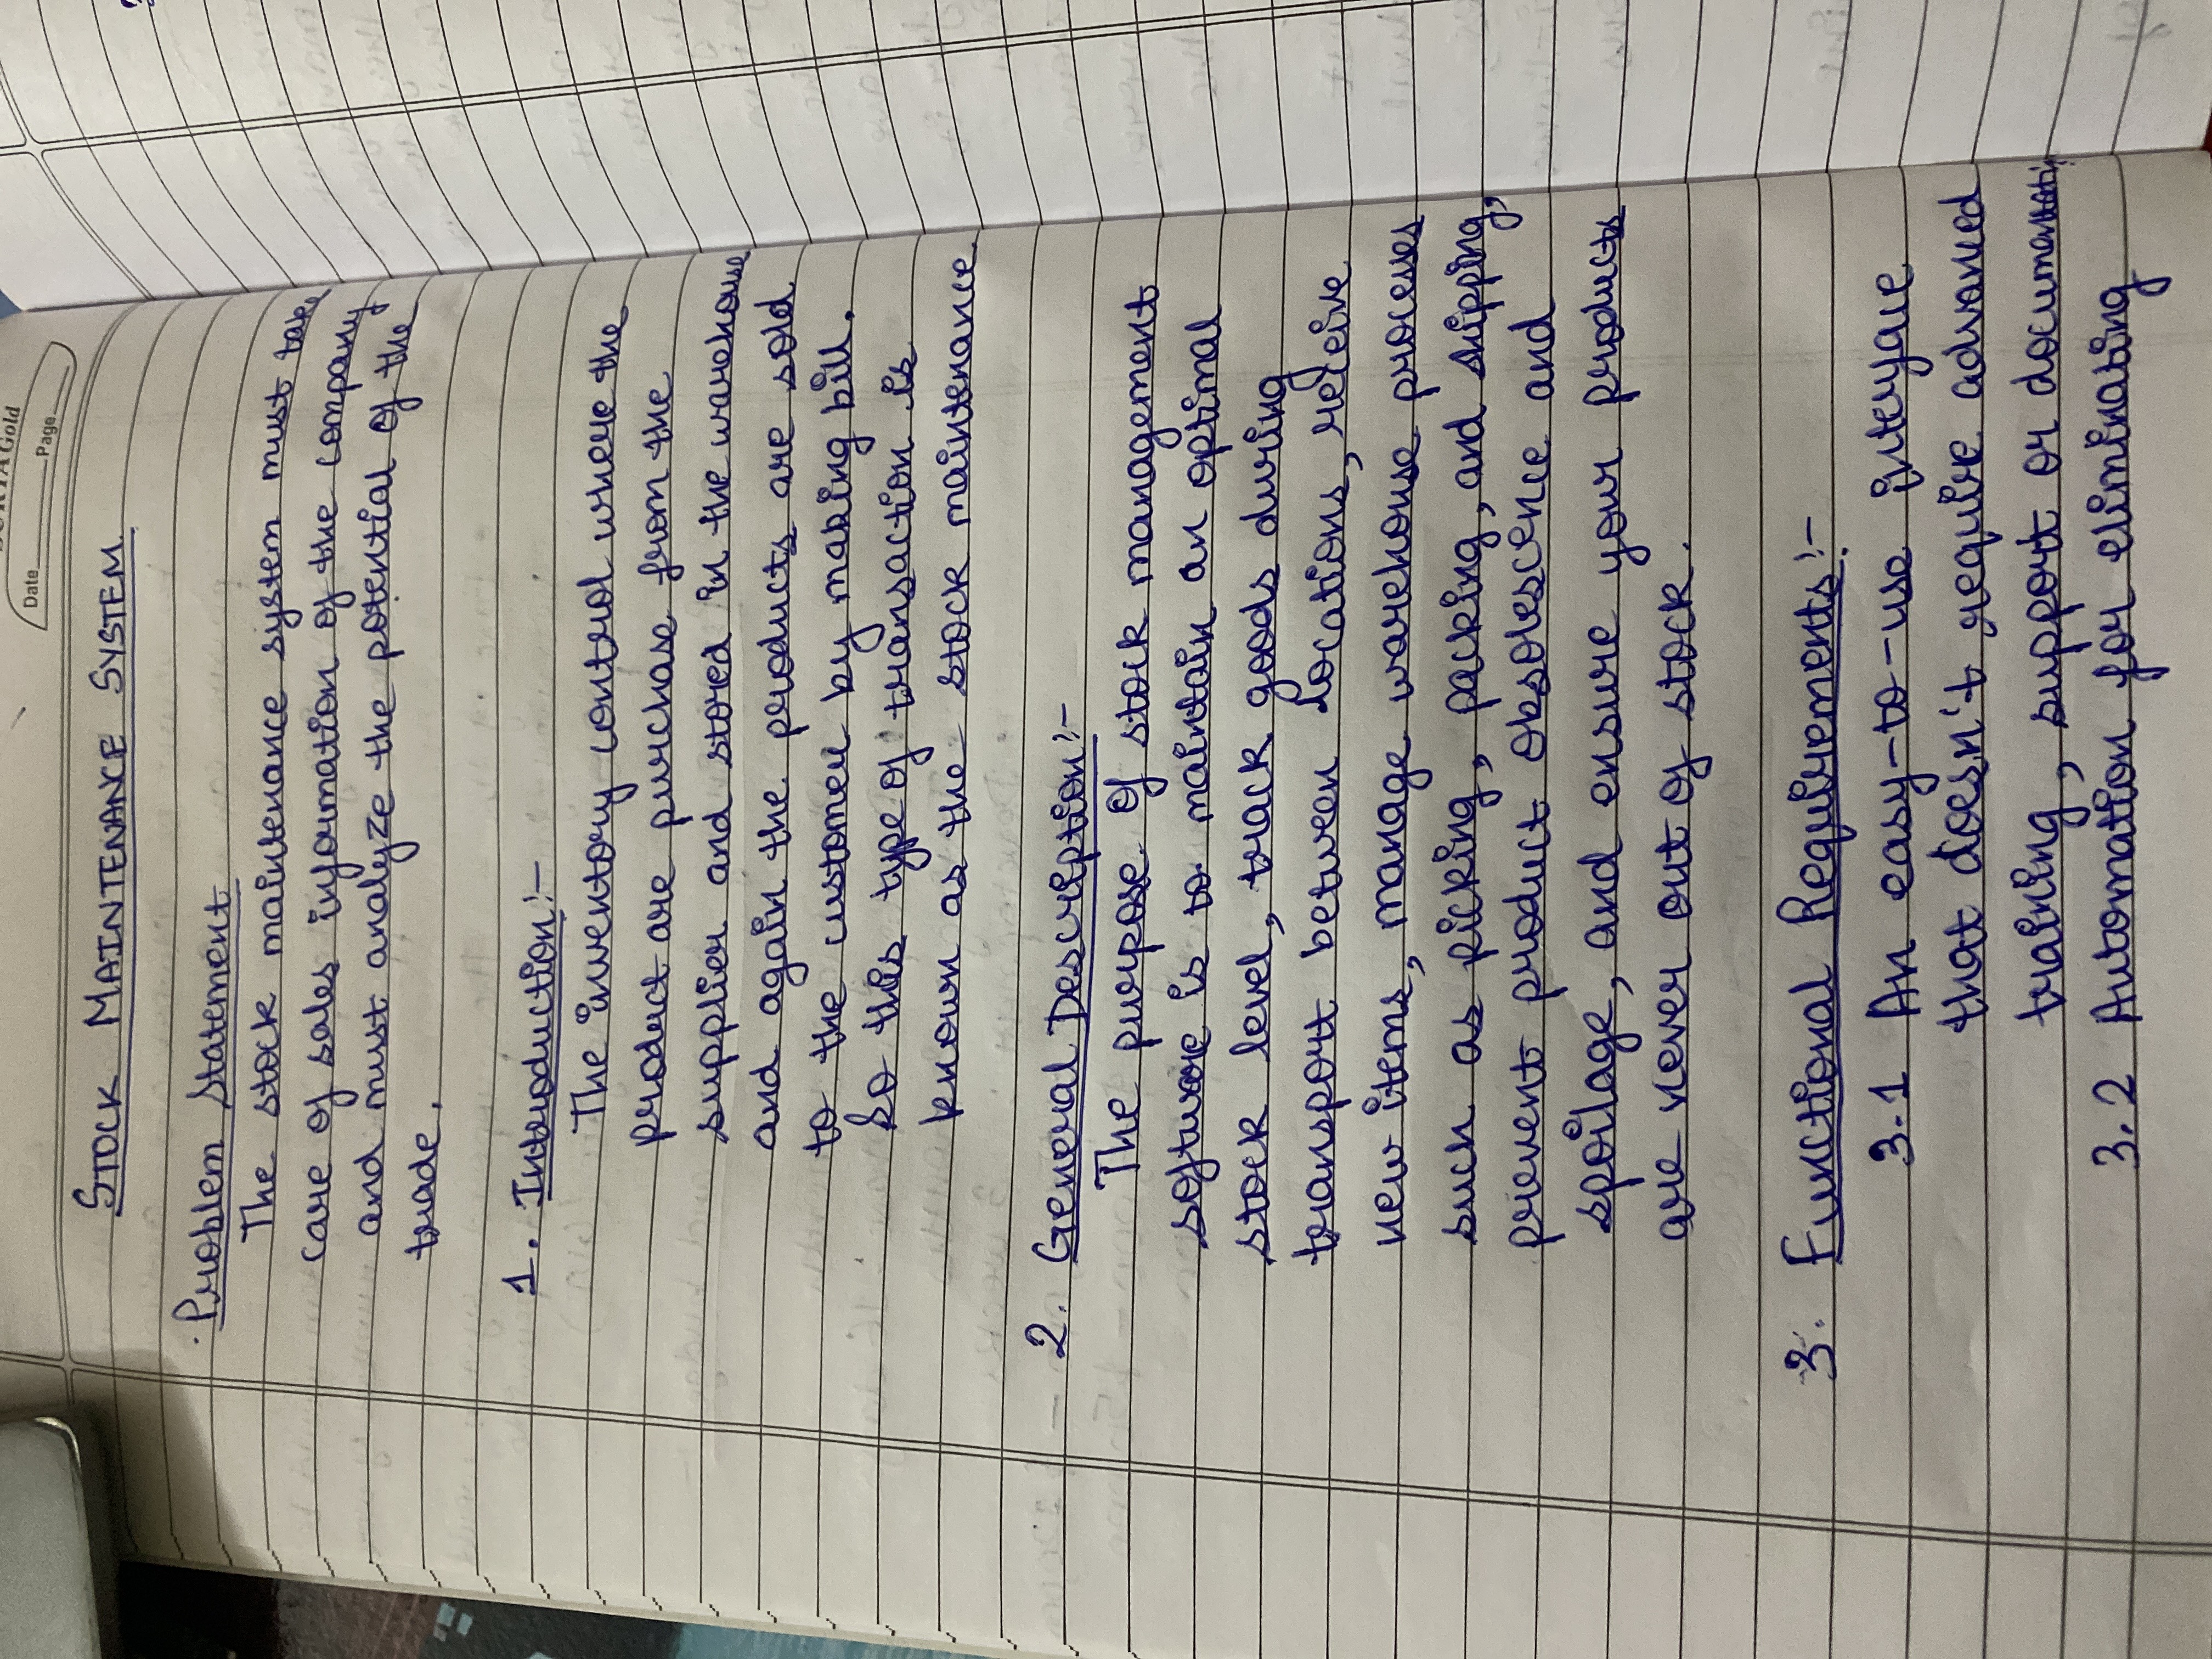 Gold
Date Page
STOCK MAINTENANCE SYSTEM.
Problem Statement
The stock maintenance system must take
care of sales information of the company
and must analyze the potential of the
trade.
1. Introduction:-
The inventory control where the
product are purchase from the
supplier and stored in the warehouse
and again the products are sold
to the customer by making bill.
So this type of transaction is
known as the stock maintenance.
2. General Description:-
The purpose of stock management
software is to maintain an optimal
stock level, track goods during
transport between locations, receive
new items, manage warehouse processes
such as picking, packing, and shipping,
prevent product obsolescence and
spoilage, and ensure your products
are never out of stock.
3. Functional Requirements:-
3.1 An easy-to-use interface
that doesn't require advanced
training, support or documentation
3.2 Automation for eliminating